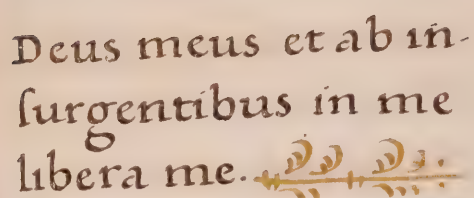 Deus meus et ab in-
ſurgentibus in me
libera me.